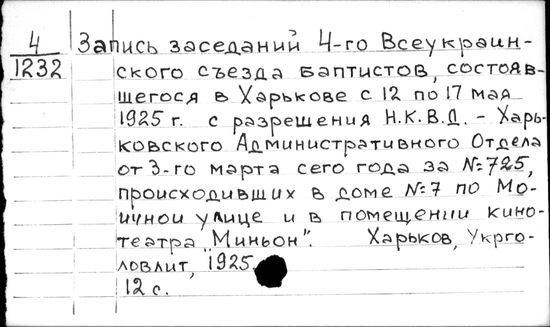 4 Запись заседаний 4-го Всеукраин-
1232 ского съезда баптистов, состояв-
шегося в Харькове с 12 по 17 мая
1925 г. с разрешения Н.К.В.Д. - Харь-
ковского Административного Отдела
от 3-го марта сего года за №725,
происходивших в доме №7 по Мо-
ичной улице и в помещении кино-
театра „Миньон". Харьков, Укрго-
ловлит, 1925.
12 с.